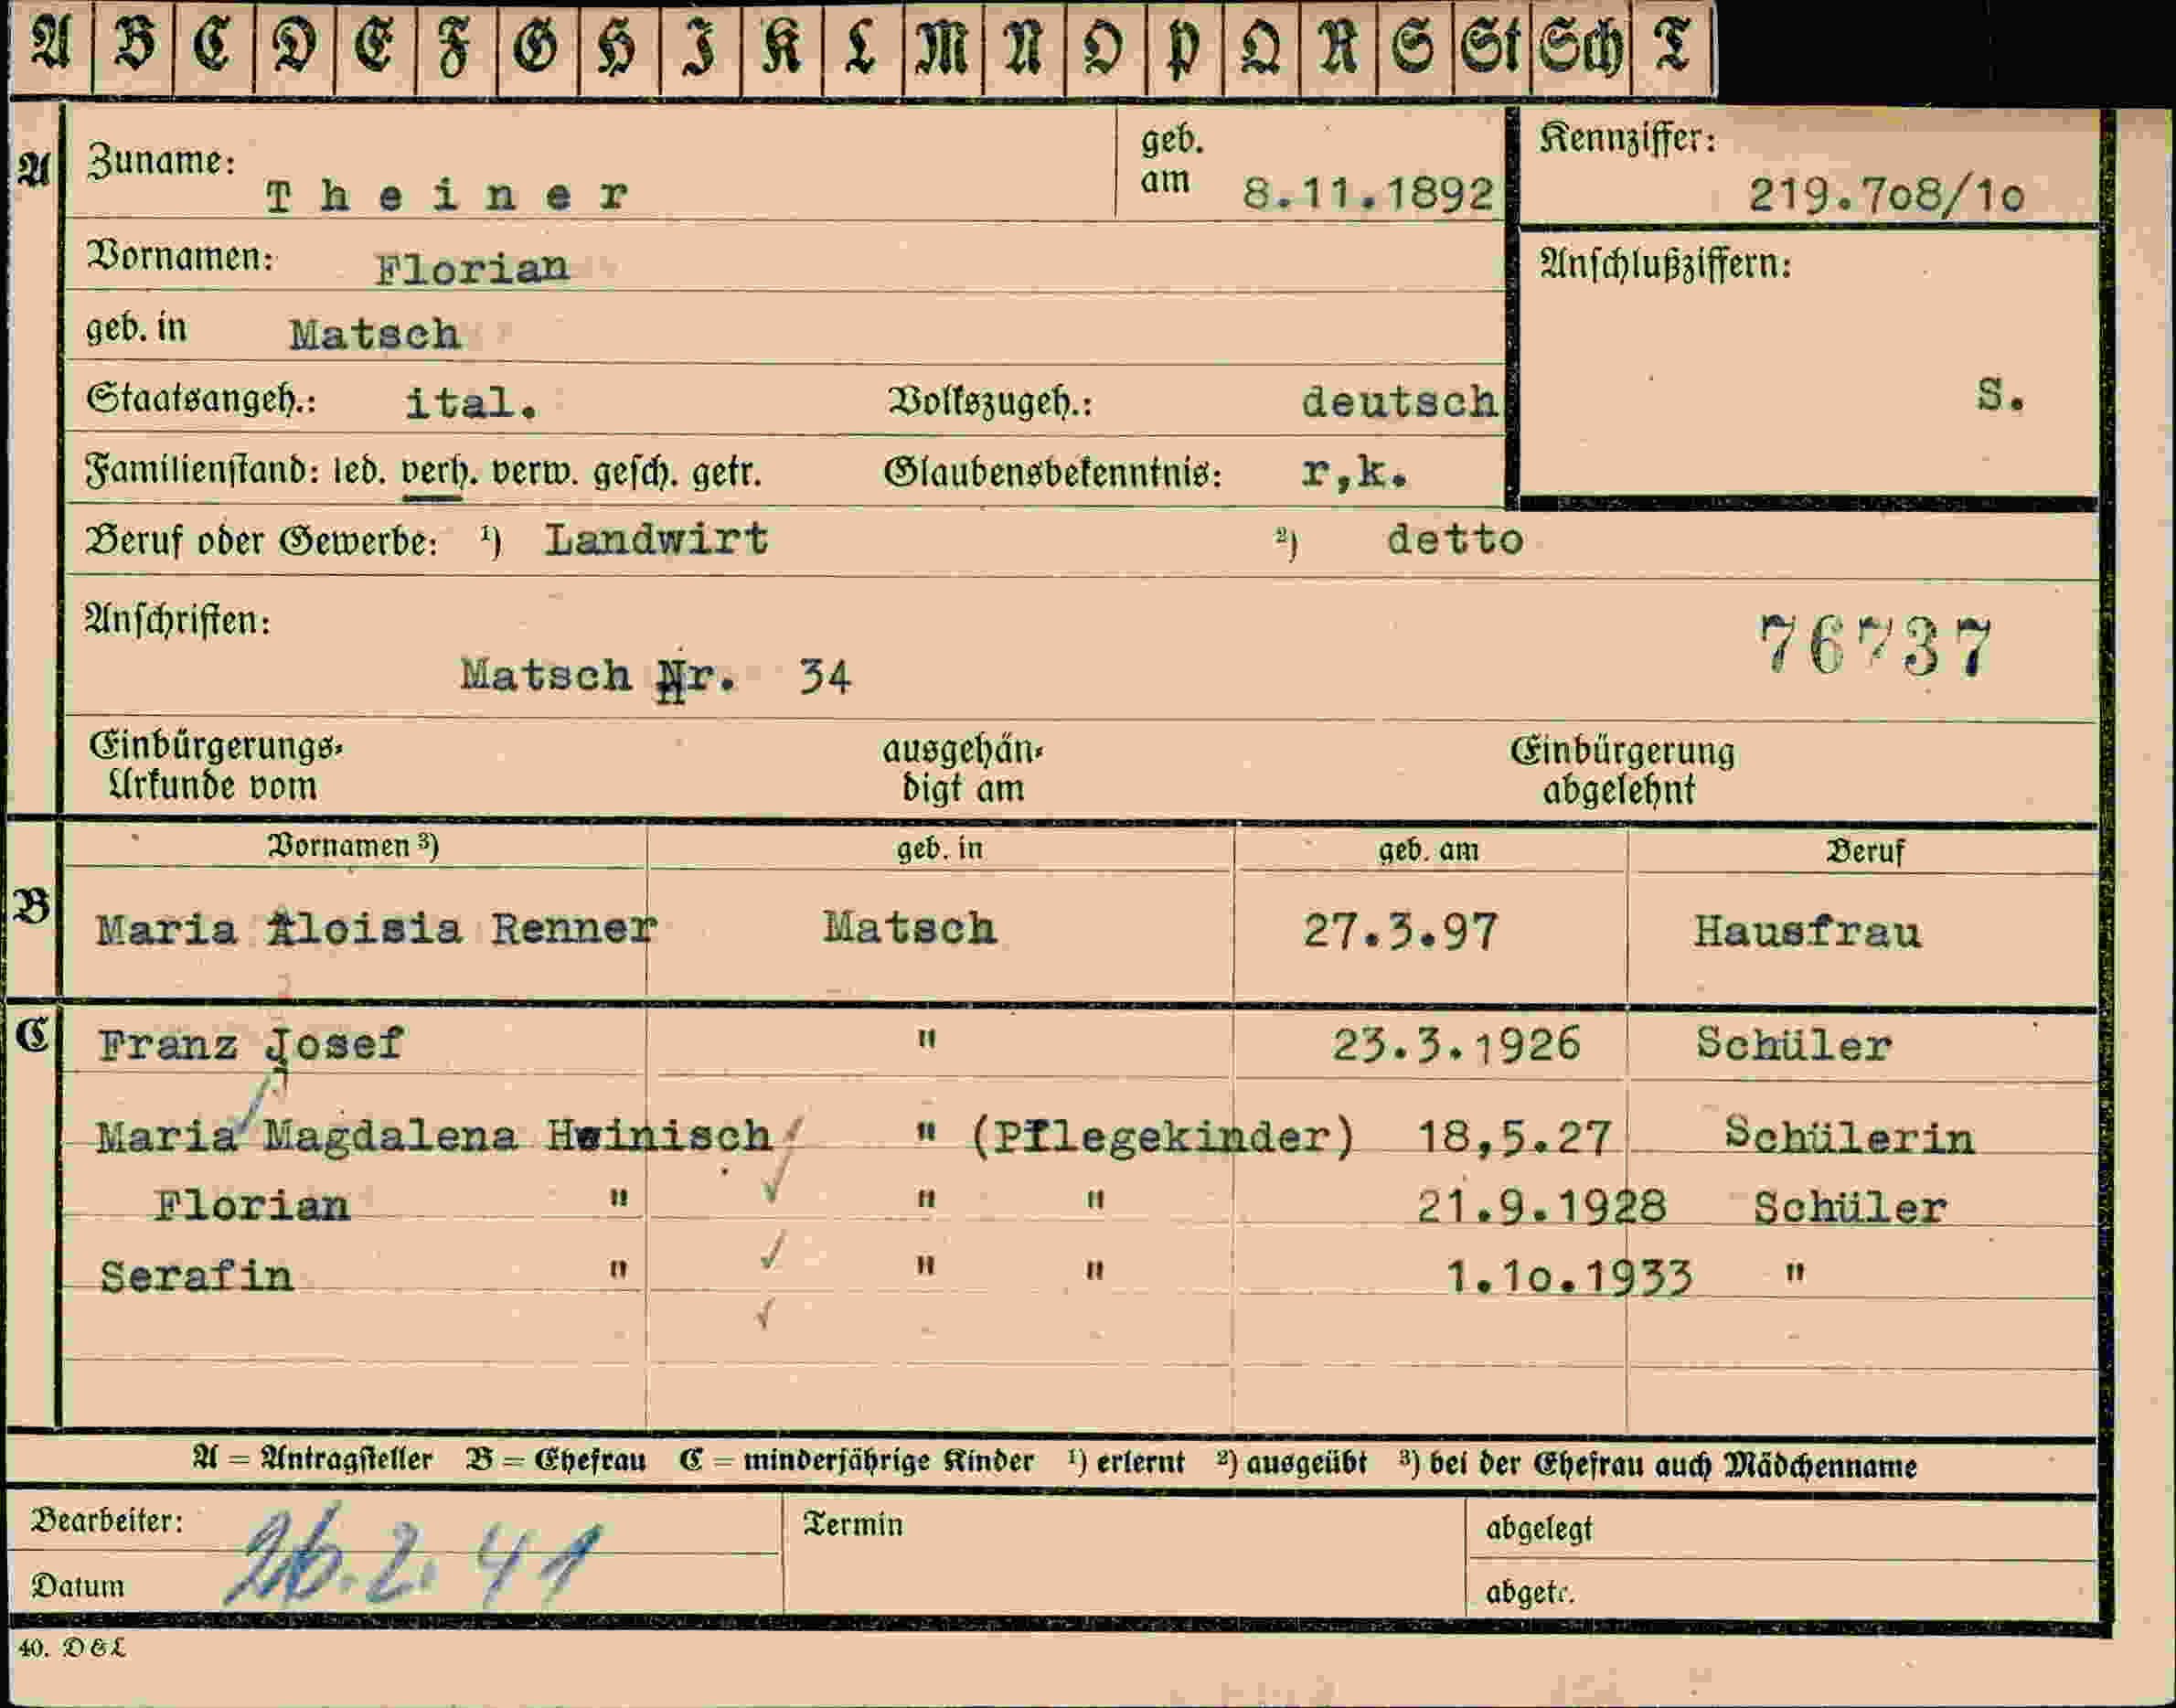 A B C D E F G H I K L M N O P Q R S St Sch T
A
Zuname: Theiner
geb. am 8.11.1892
Kennziffer: 219.7o8/1o
Vornamen: Florian
Anschlußziffern:
S.
geb. in Matsch
Staatsangeh.: ital. Volkszugeh.: deutsch
Familienstand: led. verh. verw. gesch. getr. Glaubensbekenntnis: r,k.
Beruf oder Gewerbe: ¹) Landwirt ²) detto
Anschriften:
76737
Matsch Nr. 34
Einbürgerungs-
Urkunde vom
ausgehän-
digt am
Einbürgerung
abgelehnt
Vornamen ³) geb. in geb. am Beruf
B
Maria Aloisia Renner Matsch 27.3.97 Hausfrau
C
Franz Josef " 23.3.1926 Schüler
Maria Magdalena Heinisch " (Pflegekinder) 18,5.27 Schülerin
Florian " " " 21.9.1928 Schüler
Serafin " " " 1.1o.1933 "
A = Antragsteller B = Ehefrau C = minderjährige Kinder ¹) erlernt ²) ausgeübt ³) bei der Ehefrau auch Mädchenname
Bearbeiter:
Datum
26.2.41
Termin
abgelegt
abgetr.
40. D&L